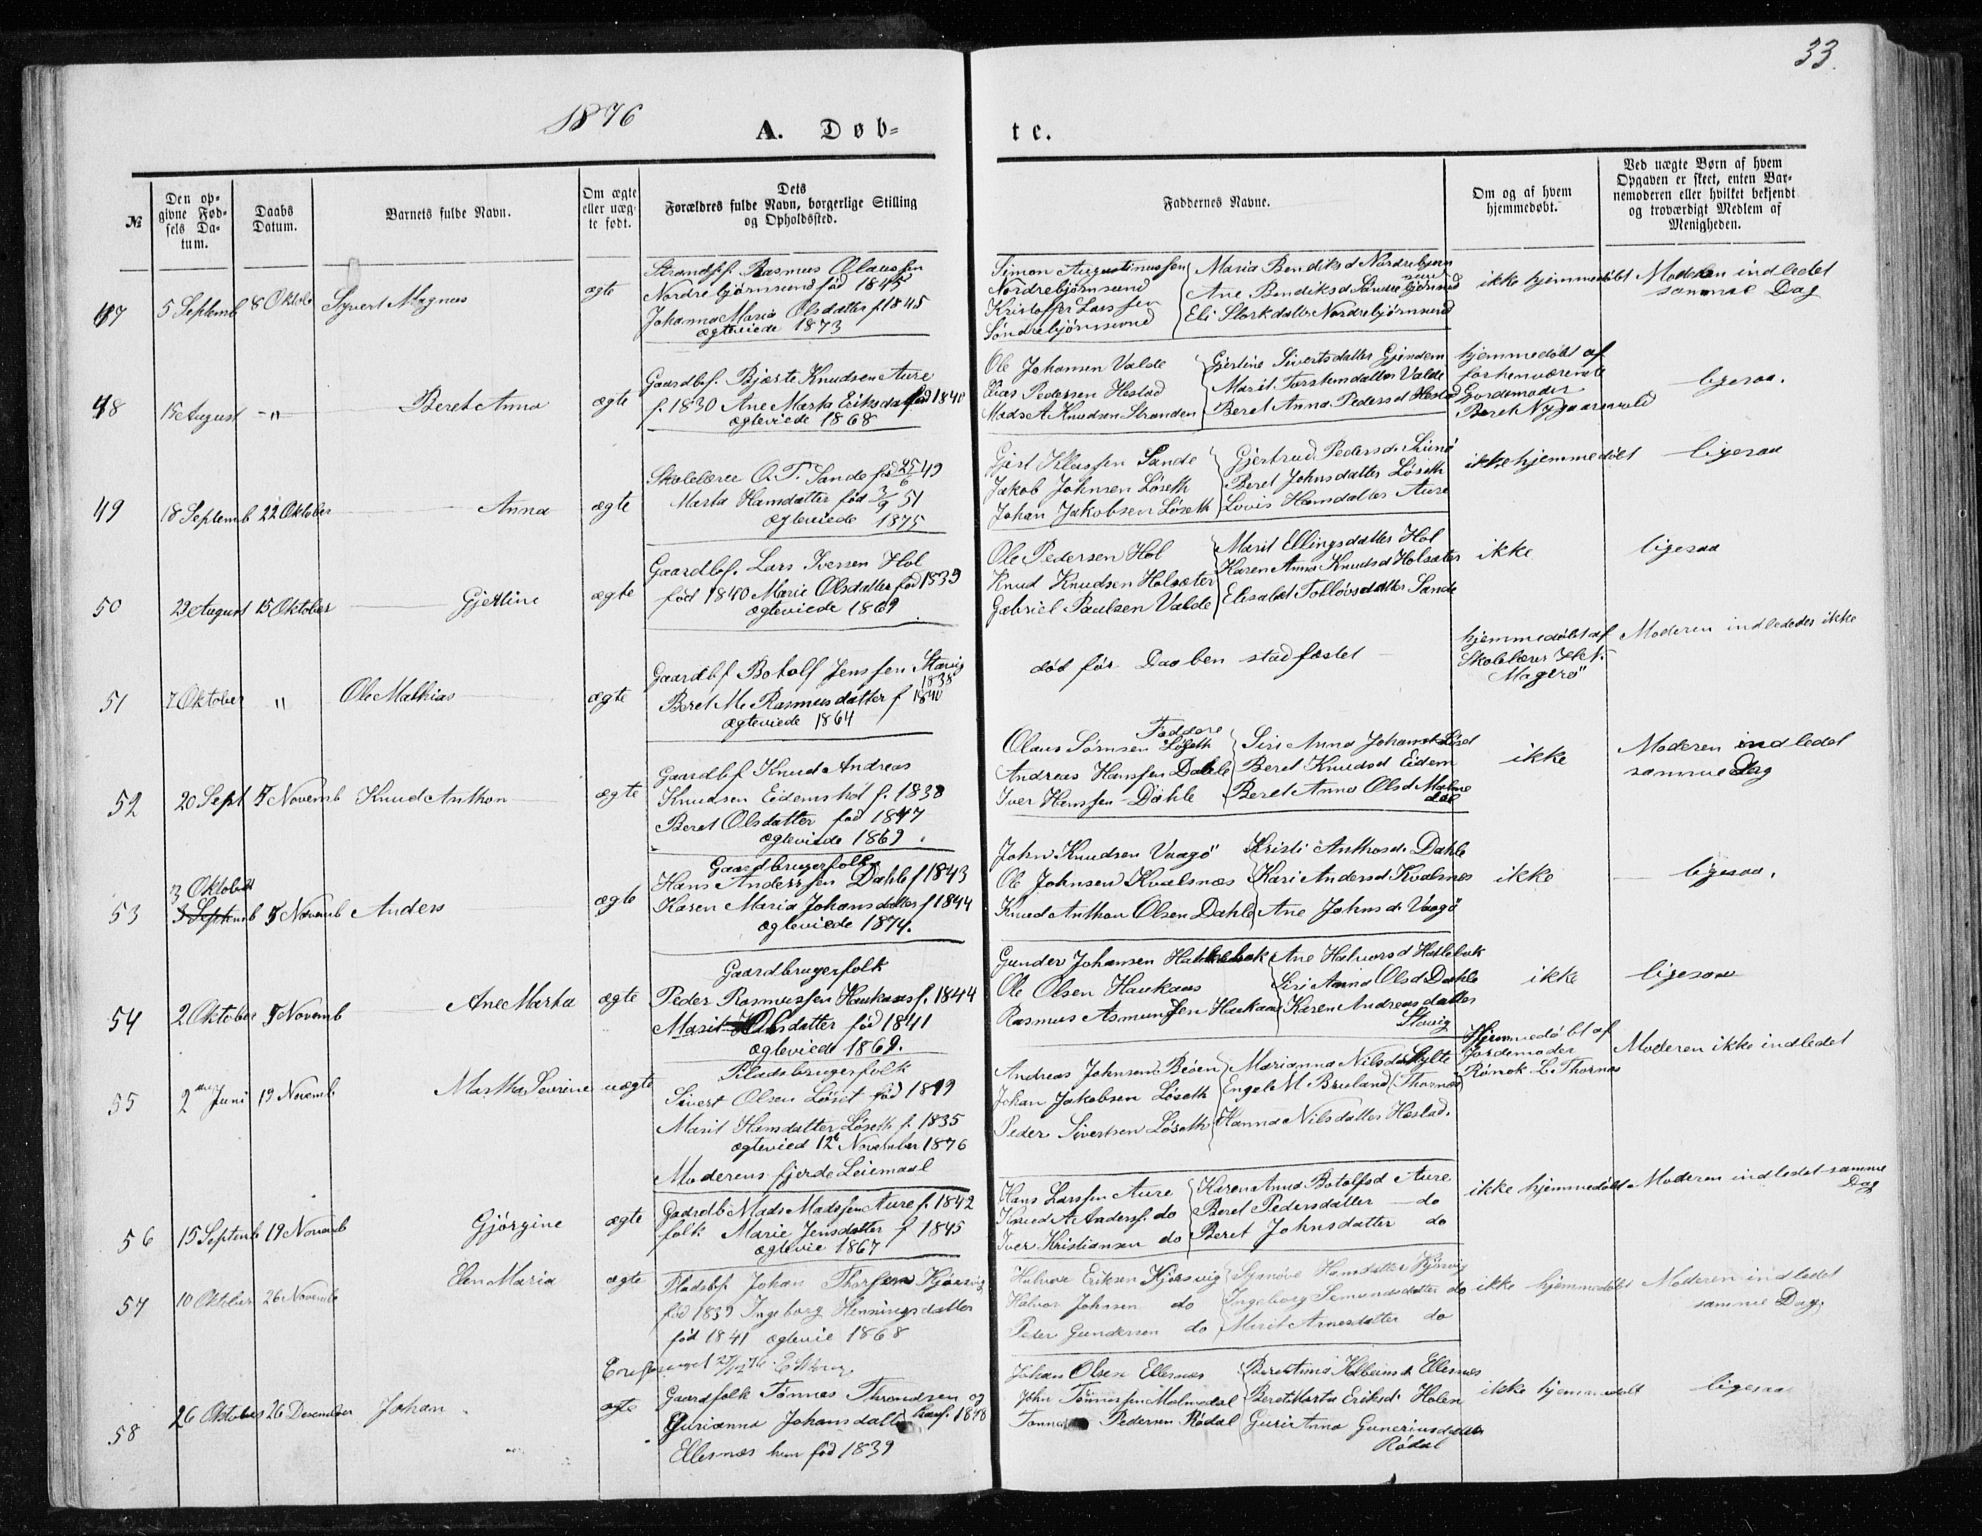 33.
1876
A. Døb-
te.
№
Den op-
givne Fød-
sels Da-
tum.
Daabs
Datum.
Barnets fulde Navn.
Om ægte
eller uæg-
te født.
Dets
Forældres fulde Navn, borgerlige Stilling
og Opholdssted.
Faddernes Navne.
Om og af hvem
hjemmedøbt.
Ved uægte Børn af hvem
Opgaven er skeet, enten Bar-
nemoderen eller hvilket bekjendt
og troværdigt Medlem af
Menigheden.
47
5 Septemb
8 Oktob
Syvert Magnus
ægte
Strandsf. Rasmus Olaussen
Nordrebjörnsund föd 1845
Johanna Maria Olsdatter f. 1845
ægteviede 1873
Simon Augustinussen
Nordrebjörnsund
Kristoffer Larssen
Söndrebjörnsund
Maria Bendiksd Nordrebjörn
sund
Ane Bendiksd Söndrebjörnsund
Eli Storkdatter Nordrebjörnsund
ikke hjemmedøbt
Moderen indledet
samme Dag
48
15 August
"
Beret Anna
ægte
Gaardbf. Bjærte Knudsen Aure
f. 1830 Ane Marta Eriksdat föd 1840
ægteviede 1868
Ole Johansen Valde
Elias Pedersen Hestad
Mads A Knudsen Stranden
Gjertine Sivertsdatter Gjendem
Marit Torstensdatter Valde
Beret Anna Pedersd Hestad
hjemmedöbt af
forhenværende
Gordemoder
Beret Nygaarsvold
ligesaa.
49
18 Septemb
22 Oktober
Anna
ægte
Skolelærer O. T. Sande föd 25/6 49
Marta Hansdatter föd 3/9 51
ægteviede 1875
Gjert Klassen Sande
Jakob Johnsen Löseth
Johan Jakobsen Löseth
Gjertrud Pedersd.
Beret Johnsdatter Löseth
Lovis Hansdatter Aure
ikke hjemmedöbt
ligesaa
50
29 August
15 Oktober
Gjertine
ægte
Gaardbf. Lars Iversen Hol
föd 1840 Marie Olsdatter föd 1839
ægteviede 1869
Ole Pedersen Hol
Knud Knudsen Holsæter
Gabriel Paulsen Valde
Marit Ellingsdatter Hol
Karen Anna Knutsd Holsæter
Elisabet Tollövsdatter Sande
ikke
ligesaa
51
7 Oktober
"
Ole Mathias
ægte
Gaardbf Botolf Jenssen Stavig
1838
Beret M. Rasmusdatter f 1840
ægteviede 1864
död för Daaben stadfæstet
hjemmedöbt af
Skolelærer
Magerö
Moderen indledes ikke
52
20 Sept
5 Novemb
Knud Anthon
ægte
Gaardbf Knud Andreas
Knudsen Eidemshol f. 1838
Beret Olsdatter föd 1847
ægteviede 1869.
Faddere
Olaus Sörnsen Löseth
Andreas Hanssen Dahle
Iver Hanssen Dahle
Siri Anna Johansd Löset
Beret Knudsd Eidem
Beret Anna Olsd Malme
dal
ikke
Moderen indledet
samme Dag
53
3 Oktober
3 Septemb
5 Novemb
Anders
ægte
Gaardbrugerfolk
Hans Anderssen Dahle f 1843
Karen Maria Johansdatter f 1844
ægteviede 1874.
John Knudsen Vaagö
Ole Johnsen Kvalsnæs
Knud Anthon Olsen Dahle
Kristi Anthonsd. Dahle
Kari Andersd Kvalsnes
Ane Johnsd. Vaagö
ikke
ligesaa.
54
2 Oktober
5 Novemb
Ane Marta
ægte
Gaardbrugerfolk
Peder Rasmussen Haukaas f. 1844
Marit Olsdatter föd 1841
ægteviede 1869.
Gunder Johansen Hatlebak
Ole Olsen Haukaas
Rasmus Asmundsen Haukaas
Ane Halvorsd Hatlebak
Siri Anna Olsd Dahle
Karen Andreasdatter
Stavig
ikke
ligesaa
55
2den Juni
19 Novemb
Martha Sevrine
uægte
Pladsbrugerfolk
Sivert Olsen Löset föd 1849
Marit Hansdatter Löseth f. 1835
ægteviede 12te November 1876
Moderens fjerde Leiemaal
Andreas Johnsen Böen
Johan Jakobsen Löseth
Peder Sivertsen Löseth
Marianna Nilsda Hylte
Engel M Bruland (Thornæs
Hanna Nilsdatter Hestad.
Hjemmedöbt af
Jordemoder
L. Thornæs
Moderen ikke indledet
56
15 Septemb
19 Novemb
Gjörgine
ægte
Gaardb Mads Madssen Aure f. 1842
folk Marie Jensdatter f 1845
ægtevie 1867
Hans Larssen Aure
Knud A Anderss. do
Iver Kristiansen do
Karen Anna Botolfsd Aure
Beret Pedersdatter — do
Beret Johnsdatter do
ikke hjemmedöbt
Moderen indledet samme
Dag
57
10 Oktober
26 Novemb
Elen Maria
ægte
Pladsbf. Johan Thorsen Kjörsvig
föd 1839 Ingeborg Henningsdatter
föd 1841 ægtevie 1868
Halvor Eriksen Kjörsvig
Halvor Johnsen do
Peder Gundersen do
Synnöve Hansdatter Kjörsvig
Ingeborg Semundsdatter do
Marit Arnesdatter do
ikke hjemmedöbt
Moderen indledet
samme Dag.
58
26 Oktober
26 Desember
Johan
ægte
Gaardfolk Tönnes Throndsen og
Gurianna Johansdatter han f. 1848
Ellesnæs hun föd 1839
Johan Olsen Ellesnæs
John Tönnessen Malmedal
Tönnes Pedersen Rödal
Beret Anna Ellesnæs
Beret Marta Eriksd. Holen
Guri Anna Guneriusdatter
Rödal
ikke hjemmedöbt
ligesaa